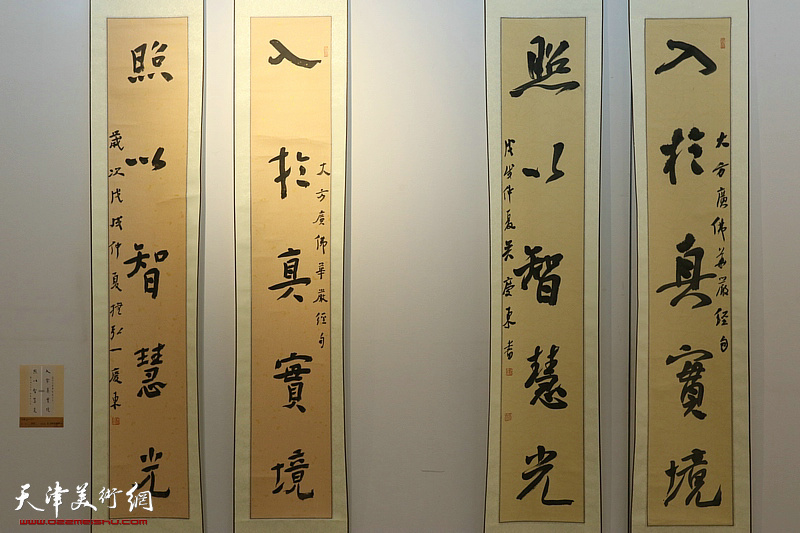 入於真實境
大方廣佛華嚴經句
照以智慧光
戊戌仲夏吳慶東書
入於真實境
大方廣佛華嚴經句
照以智慧光
歲次戊戌仲夏
弘一
慶東
天津美術網